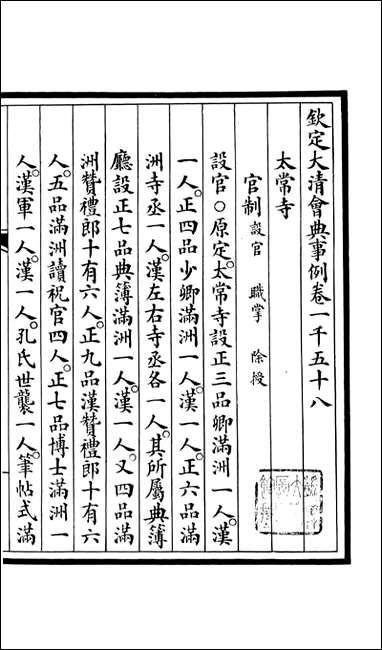 欽定大清會典事例卷一千五十八
太常寺
官制設官 職掌 除授
設官○原定太常寺設正三品卿滿洲一人漢
一人正四品少卿滿洲一人漢一人正六品滿
洲寺丞一人漢左右寺丞各一人其所屬典簿
廳設正七品典簿滿洲一人漢一人又四品滿
洲贊禮郎十有六人正九品漢贊禮郎十有六
人五品滿洲讀祝官四人正七品博士滿洲一
人漢軍一人漢一人孔氏世襲一人筆帖式滿